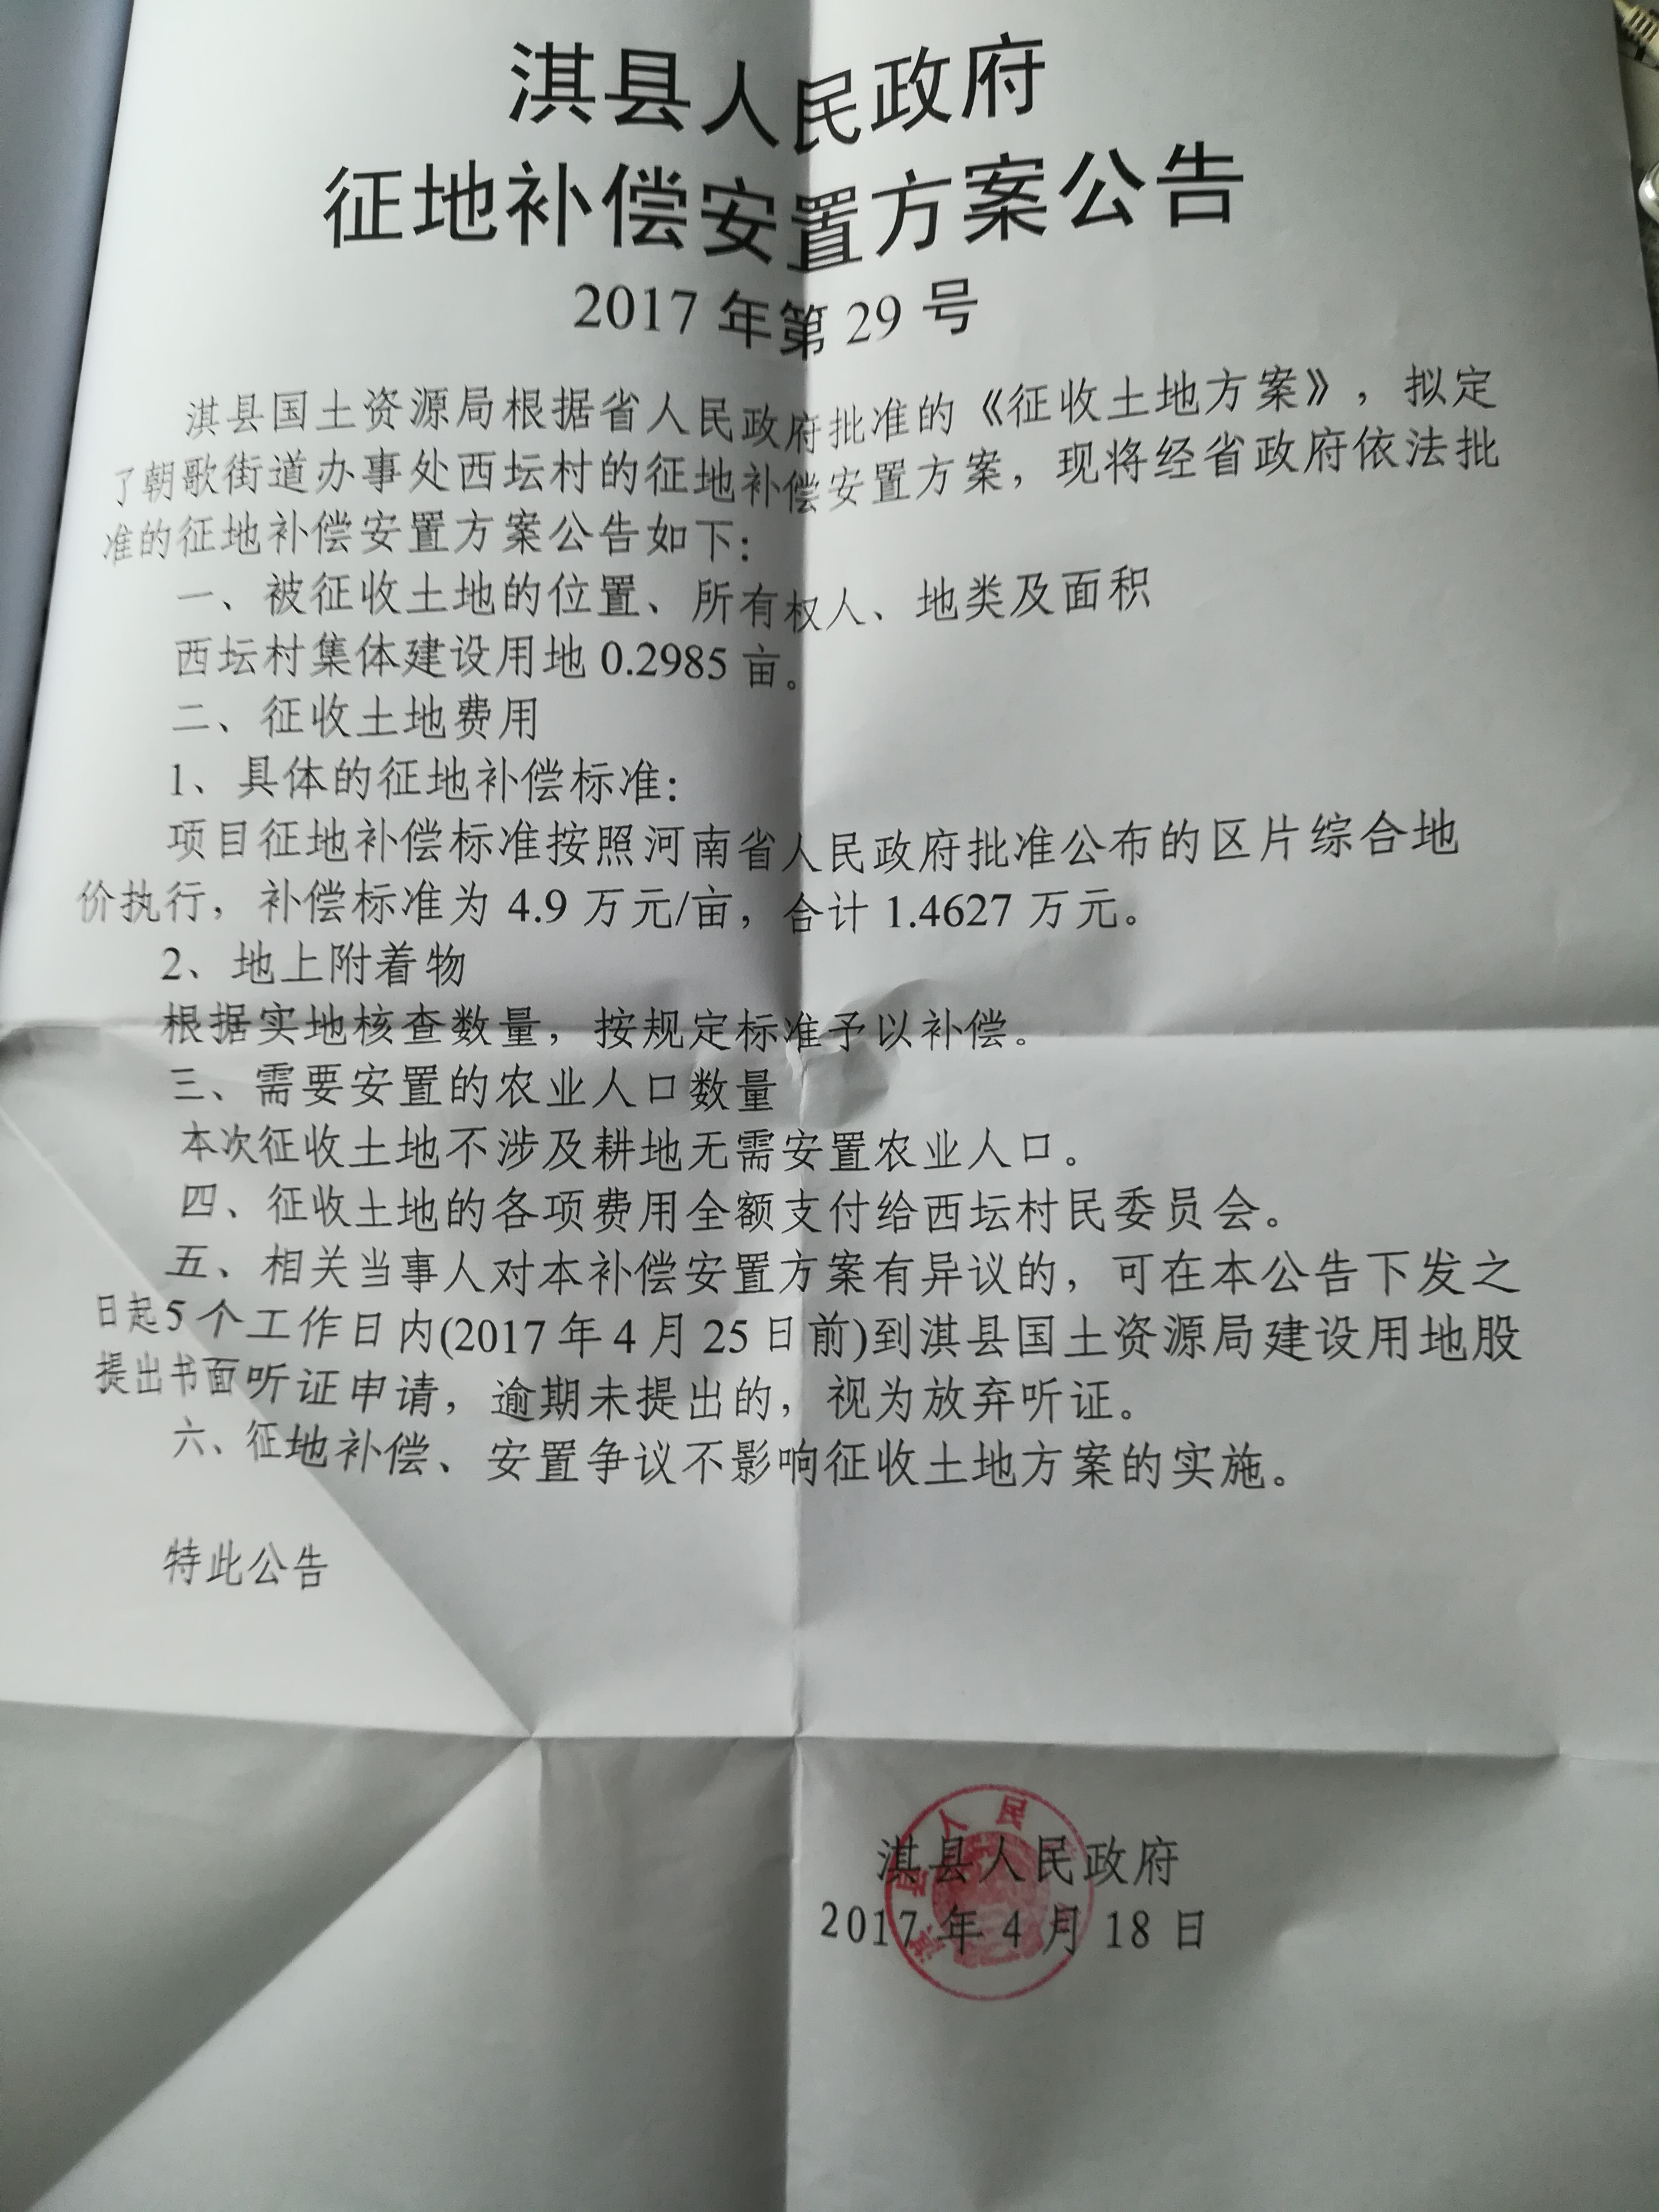 淇县人民政府
征地补偿安置方案公告
2017年第29号
淇县国土资源局根据省人民政府批准的《征收土地方案》，拟定
了朝歌街道办事处西坛村的征地补偿安置方案，现将经省政府依法批
准的征地补偿安置方案公告如下：
一、被征收土地的位置、所有权人、地类及面积
西坛村集体建设用地0.2985亩。
二、征收土地费用
1、具体的征地补偿标准：
项目征地补偿标准按照河南省人民政府批准公布的区片综合地
价执行，补偿标准为4.9万元/亩，合计1.4627万元。
2、地上附着物
根据实地核查数量，按规定标准予以补偿。
三、需要安置的农业人口数量
本次征收土地不涉及耕地无需安置农业人口。
四、征收土地的各项费用全额支付给西坛村民委员会。
五、相关当事人对本补偿安置方案有异议的，可在本公告下发之
日起5个工作日内(2017年4月25日前)到淇县国土资源局建设用地股
提出书面听证申请，逾期未提出的，视为放弃听证。
六、征地补偿、安置争议不影响征收土地方案的实施。
特此公告
淇县人民政府
2017年4月18日
淇县人民